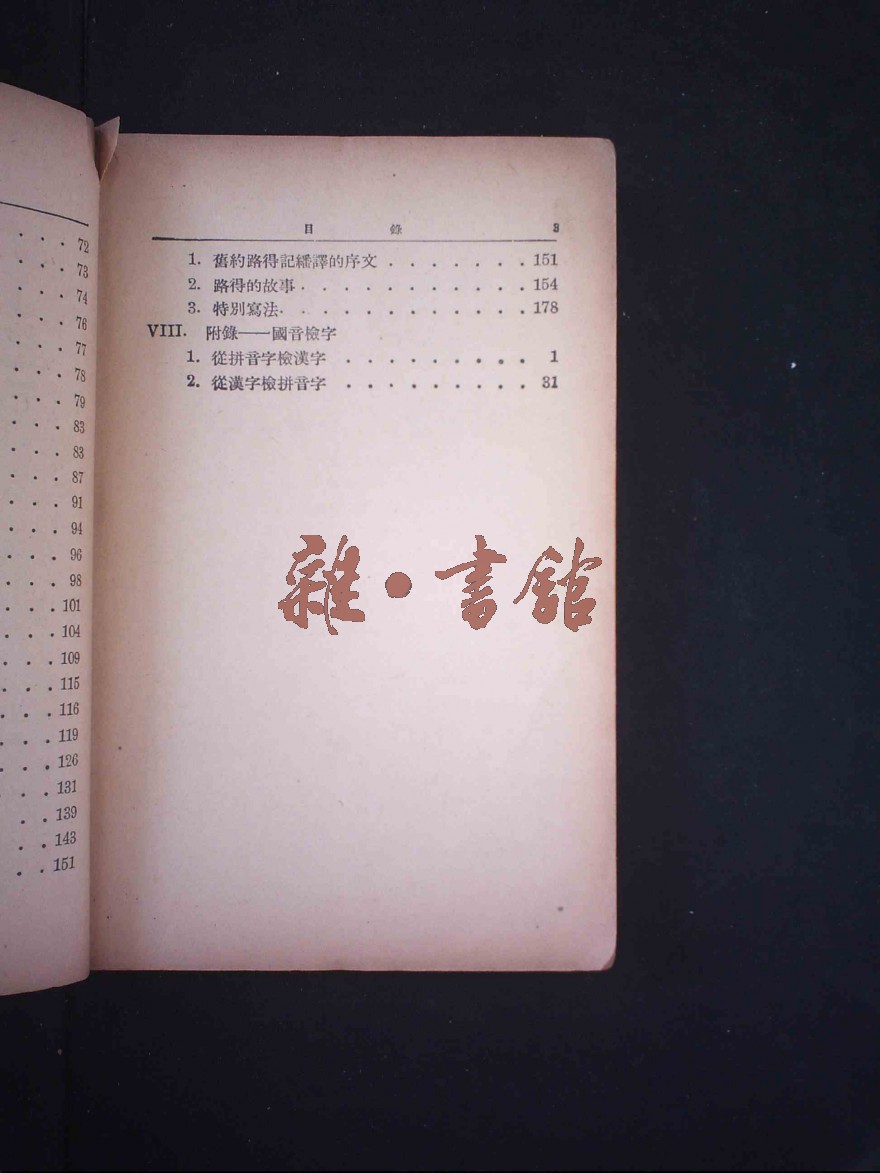 72
73
74
76
77
78
79
83
83
87
91
94
96
98
101
104
109
115
116
119
126
131
139
143
151
目 錄 3
1. 舊約路得記繙譯的序文 . . . . . . . 151
2. 路得的故事 . . . . . . . . . . . 154
3. 特別寫法 . . . . . . . . . . . . 178
VIII. 附錄——國音檢字
1. 從拼音字檢漢字 . . . . . . . . . 1
2. 從漢字檢拼音字 . . . . . . . . . 31
雜·書館